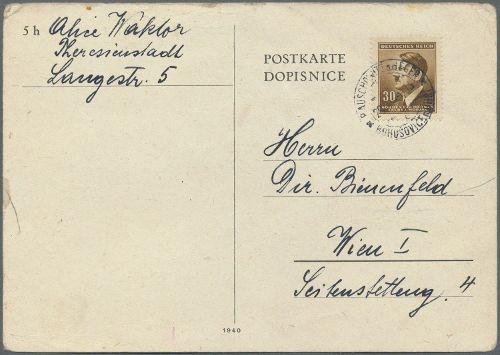 5 h Alice Waktor
Theresienstadt
Langestr. 5
POSTKARTE
DOPISNICE
DEUTSCHES REICH
30
BÖHMEN UND MÄHREN
BAUSCHOWITZ
BOHUSOVICE
Herrn
Dir. Bienenfeld
Wien I
Seitenstetteng. 4
1940